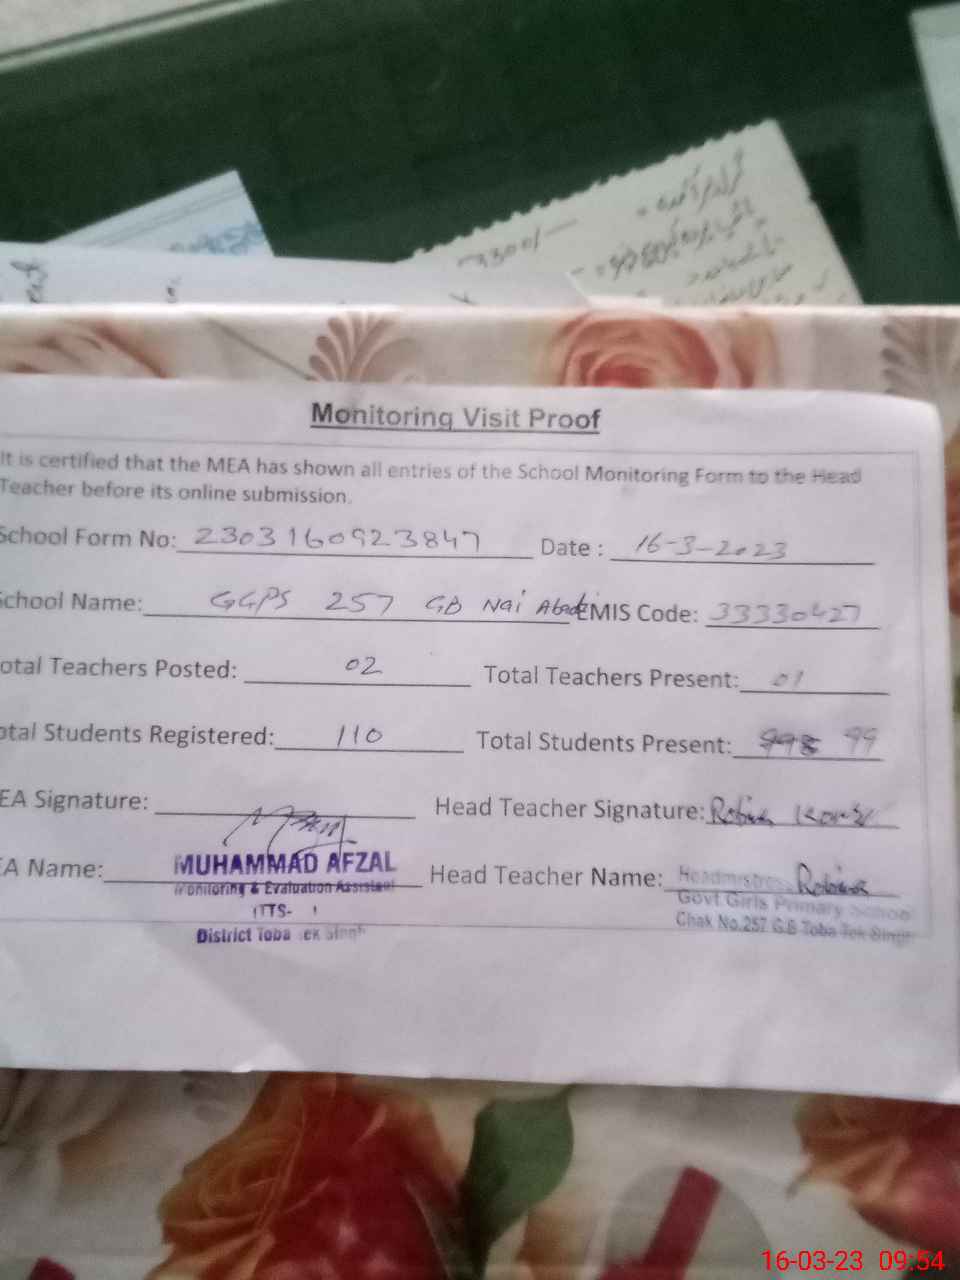 3300/-
Monitoring Visit Proof
It is certified that the MEA has shown all entries of the School Monitoring Form to the Head
Teacher before its online submission.
School Form No: 2303160923847 Date : 16-3-2023
School Name: GGPS 257 GB Nai Abadi EMIS Code: 33330427
otal Teachers Posted: 02 Total Teachers Present: 01
otal Students Registered: 110 Total Students Present: 99
EA Signature: Head Teacher Signature: Robina
EA Name: MUHAMMAD AFZAL Head Teacher Name: Headmistress Robina
Monitoring & Evaluation Assistant Govt Girls Primary School
TTS- Chak No.257 G.B Toba Tek Singh
District Toba Tek Singh
16-03-23 09:54